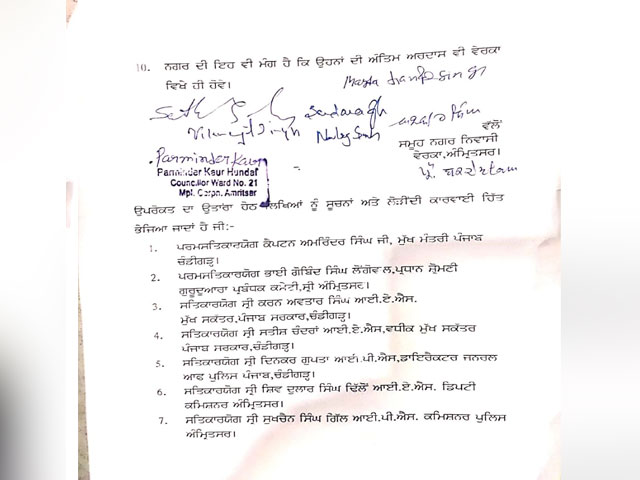 10. ਨਗਰ ਦੀ ਇਹ ਵੀ ਮੰਗ ਹੈ ਕਿ ਉਹਨਾਂ ਦੀ ਅੰਤਿਮ ਅਰਦਾਸ ਵੀ ਵੇਰਕਾ
ਵਿਖੇ ਹੀ ਹੋਵੇ।
ਵੱਲੋਂ
ਸਮੂਹ ਨਗਰ ਨਿਵਾਸੀ
ਵੇਰਕਾ,ਅੰਮ੍ਰਿਤਸਰ।
Parminder Kaur
Parminder Kaur Hundal
Councilor Ward No. 21
Mpl. Corpn. Amritsar
ਉਪਰੋਕਤ ਦਾ ਉਤਾਰਾ ਹੇਠ ਲਿਖਿਆਂ ਨੂੰ ਸੂਚਨਾਂ ਅਤੇ ਲੋੜੀਂਦੀ ਕਾਰਵਾਈ ਹਿੱਤ
ਭੇਜਿਆ ਜਾਦਾਂ ਹੈ ਜੀ:-
1. ਪਰਮਸਤਿਕਾਰਯੋਗ ਕੈਪਟਨ ਅਮਰਿੰਦਰ ਸਿੰਘ ਜੀ, ਮੁੱਖ ਮੰਤਰੀ ਪੰਜਾਬ
ਚੰਡੀਗੜ੍ਹ।
2. ਪਰਮਸਤਿਕਾਰਯੋਗ ਭਾਈ ਗੋਬਿੰਦ ਸਿੰਘ ਲੋਂਗੋਵਾਲ,ਪ੍ਰਧਾਨ ਸ਼੍ਰੋਮਣੀ
ਗੁਰੂਦੁਆਰਾ ਪ੍ਰਬੰਧਕ ਕਮੇਟੀ,ਸ੍ਰੀ ਅੰਮ੍ਰਿਤਸਰ।
3. ਸਤਿਕਾਰਯੋਗ ਸ੍ਰੀ ਕਰਨ ਅਵਤਾਰ ਸਿੰਘ ਆਈ.ਏ.ਐਸ.
ਮੁੱਖ ਸਕੱਤਰ,ਪੰਜਾਬ ਸਰਕਾਰ,ਚੰਡੀਗੜ੍ਹ।
4. ਸਤਿਕਾਰਯੋਗ ਸ੍ਰੀ ਸਤੀਸ਼ ਚੰਦਰਾਂ ਆਈ.ਏ.ਐਸ,ਵਧੀਕ ਮੁੱਖ ਸਕੱਤਰ
ਪੰਜਾਬ ਸਰਕਾਰ,ਚੰਡੀਗੜ੍ਹ।
5. ਸਤਿਕਾਰਯੋਗ ਸ੍ਰੀ ਦਿਨਕਰ ਗੁਪਤਾ ਆਈ.ਪੀ.ਐਸ,ਡਾਇਰੈਕਟਰ ਜਨਰਲ
ਆਫ ਪੁਲਿਸ ਪੰਜਾਬ,ਚੰਡੀਗੜ੍ਹ।
6. ਸਤਿਕਾਰਯੋਗ ਸ੍ਰੀ ਸ਼ਿਵ ਦੁਲਾਰ ਸਿੰਘ ਢਿੱਲੋਂ ਆਈ.ਏ.ਐਸ. ਡਿਪਟੀ
ਕਮਿਸ਼ਨਰ ਅੰਮ੍ਰਿਤਸਰ।
7. ਸਤਿਕਾਰਯੋਗ ਸ੍ਰੀ ਸੁਖਚੈਨ ਸਿੰਘ ਗਿੱਲ ਆਈ.ਪੀ.ਐਸ. ਕਮਿਸ਼ਨਰ ਪੁਲਿਸ
ਅੰਮ੍ਰਿਤਸਰ।